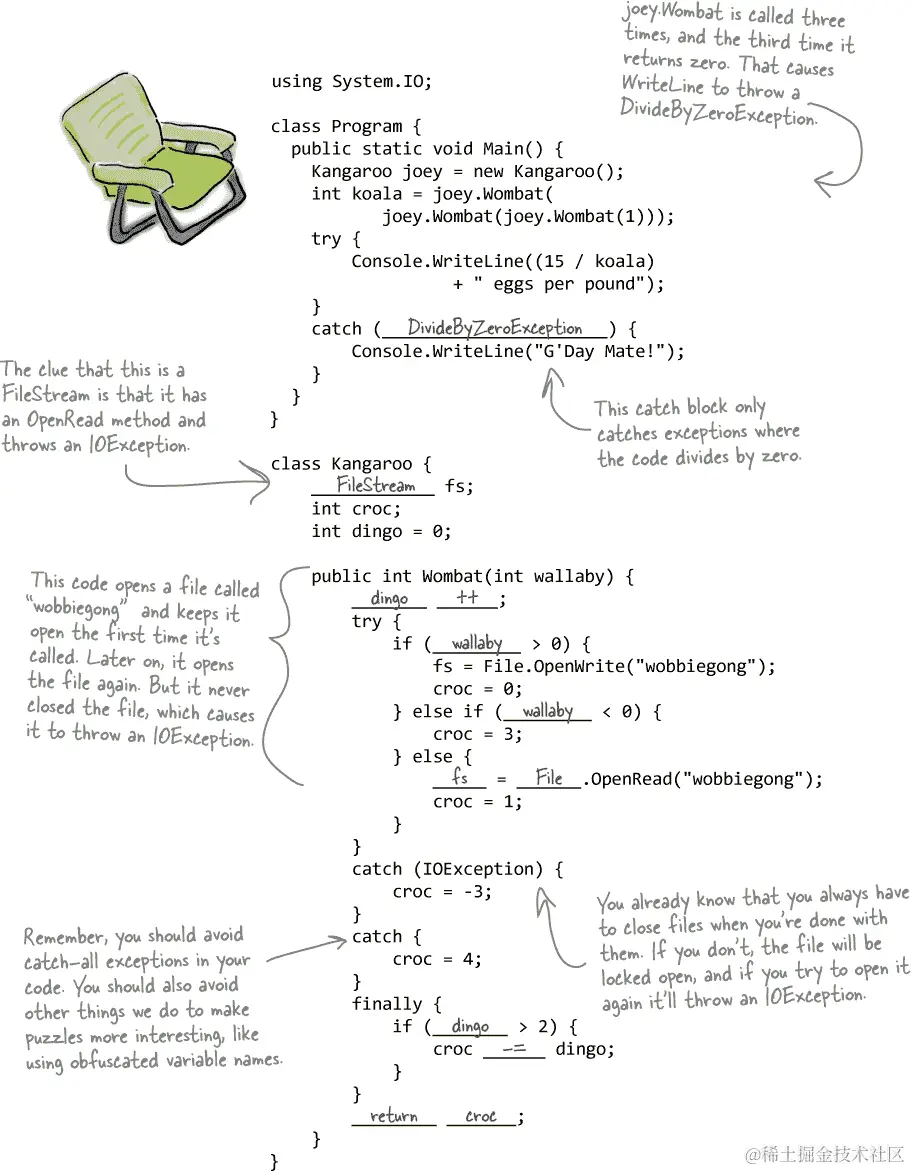 joey.Wombat is called three
times, and the third time it
returns zero. That causes
WriteLine to throw a
DivideByZeroException.
using System.IO;
class Program {
public static void Main() {
Kangaroo joey = new Kangaroo();
int koala = joey.Wombat(
joey.Wombat(joey.Wombat(1)));
try {
Console.WriteLine((15 / koala)
+ " eggs per pound");
}
catch (DivideByZeroException) {
Console.WriteLine("G'Day Mate!");
}
}
}
The clue that this is a
FileStream is that it has
an OpenRead method and
throws an IOException.
This catch block only
catches exceptions where
the code divides by zero.
class Kangaroo {
FileStream fs;
int croc;
int dingo = 0;
This code opens a file called
“wobbiegong” and keeps it
open the first time it’s
called. Later on, it opens
the file again. But it never
closed the file, which causes
it to throw an IOException.
public int Wombat(int wallaby) {
dingo ++;
try {
if (wallaby > 0) {
fs = File.OpenWrite("wobbiegong");
croc = 0;
} else if (wallaby < 0) {
croc = 3;
} else {
fs = File.OpenRead("wobbiegong");
croc = 1;
}
}
catch (IOException) {
croc = -3;
}
catch {
croc = 4;
}
finally {
if (dingo > 2) {
croc -= dingo;
}
}
return croc;
}
}
Remember, you should avoid
catch-all exceptions in your
code. You should also avoid
other things we do to make
puzzles more interesting, like
using obfuscated variable names.
You already know that you always have
to close files when you’re done with
them. If you don’t, the file will be
locked open, and if you try to open it
again it’ll throw an IOException.
@稀土掘金技术社区